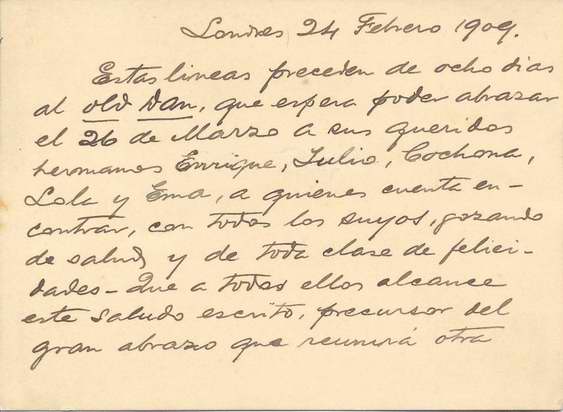 Londres 24 Febrero 1909.
Estas lineas preceden de ocho dias
al old Dan, que espera poder abrazar
el 26 de Marzo a sus queridos
hermanos Enrique, Julio, Cochona,
Lola y Ema, a quienes cuenta en-
contrar, con todos los suyos, gozando
de salud y de toda clase de felici-
dades - Que a todos ellos alcance
este saludo escrito, precursor del
gran abrazo que reunirá otra